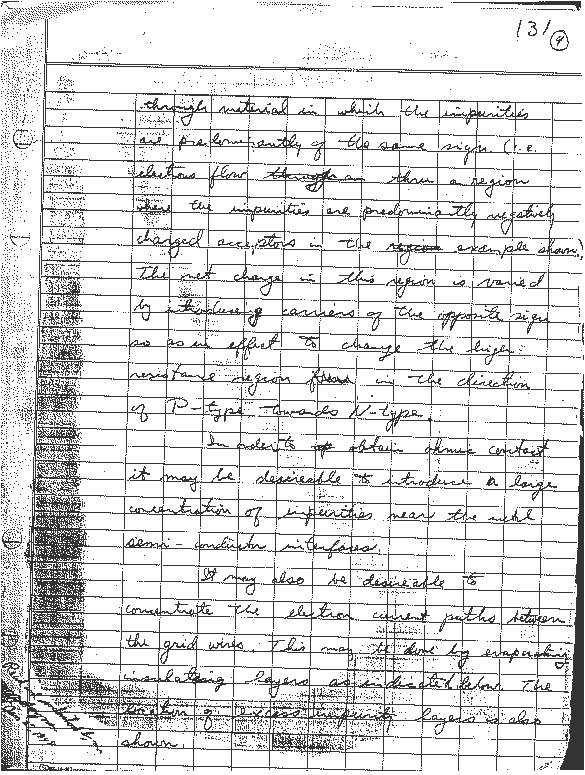 131
4
through material in which the impurities
are predominantly of the same sign. (i.e.
electrons flow through an thru a region
where the impurities are predominantly negatively
charged acceptors in the region example shown.)
The net charge in this region is varied
by introducing carriers of the opposite sign
so as in effect to change the high
resistance region from in the direction
of P-type towards N-type.
In order to obtain ohmic contact
it may be desireable to introduce a large
concentration of impurities near the metal
semi-conductor interfaces.
It may also be desireable to
concentrate the electron current paths between
the grid wires. This may be done by evaporating
insulating layers as indicated below. The
location of excess impurity layers is also
shown.